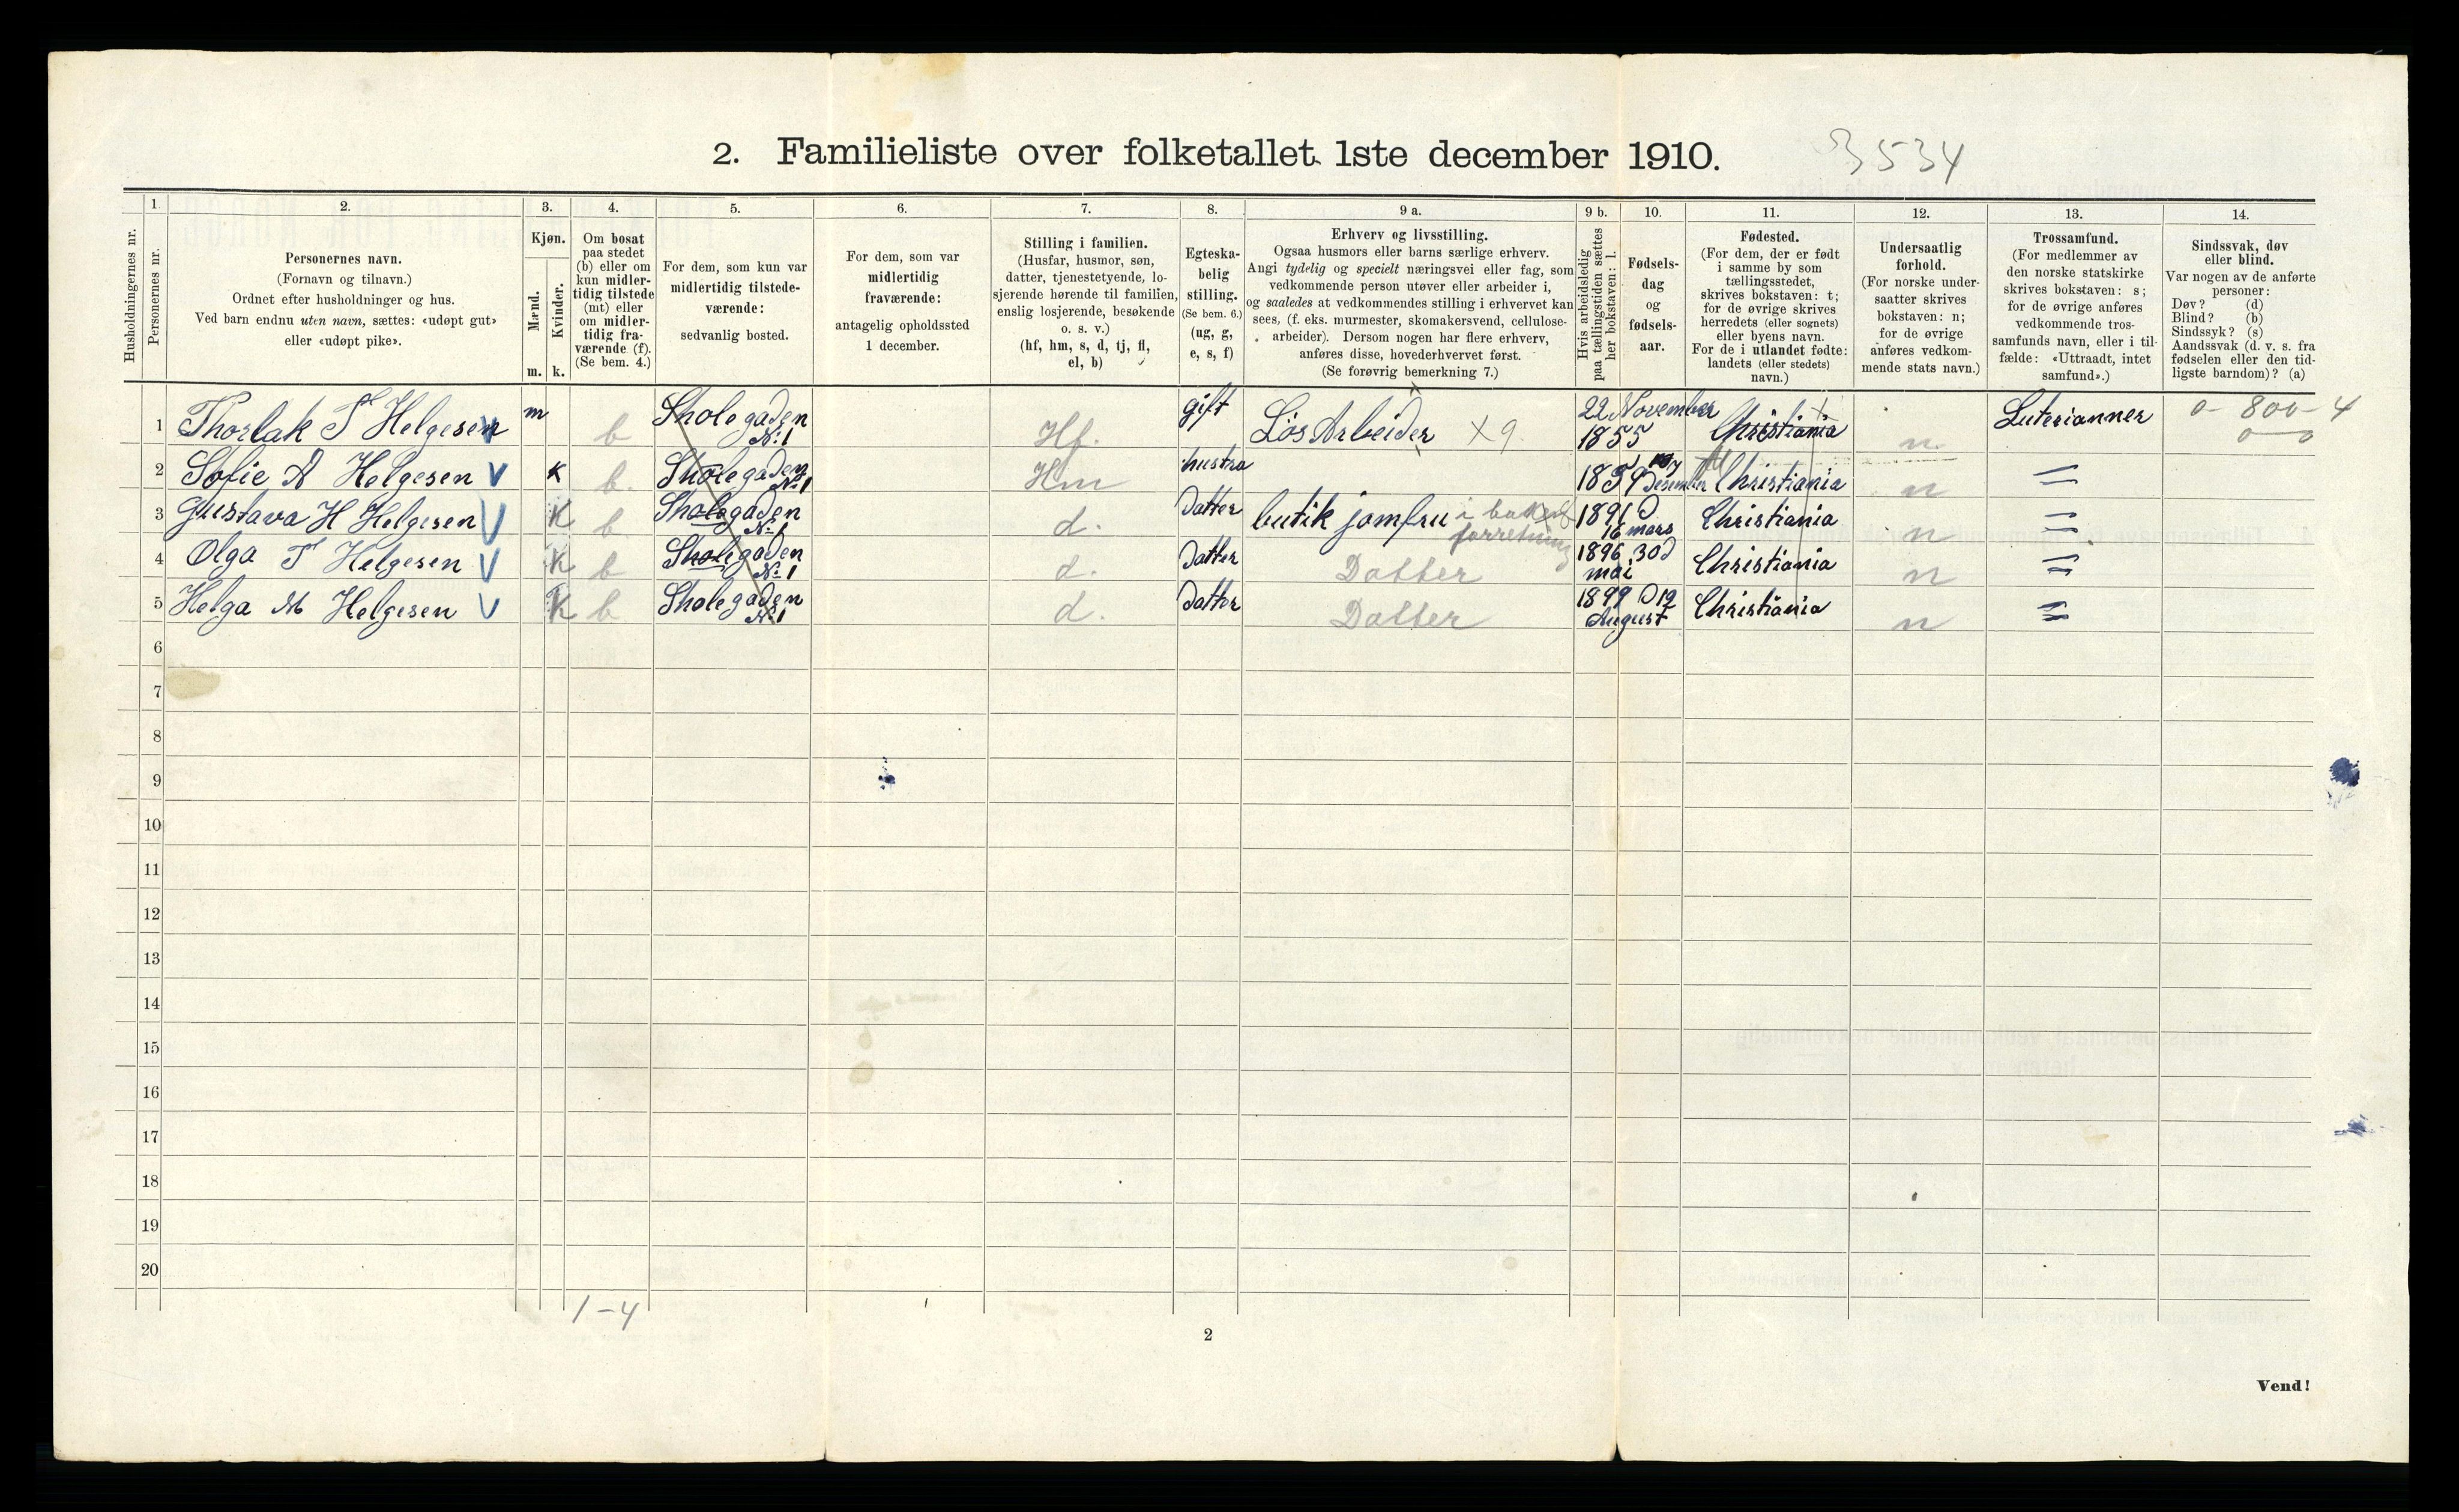 2. Familieliste over folketallet 1ste december 1910. 3534
Husholdningernes nr.
1.
Personernes nr.
2.
Personernes navn.
(Fornavn og tilnavn.)
Ordnet efter husholdninger og hus.
Ved barn endnu uten navn, sættes: «udøpt gut»
eller «udøpt pike».
3.
Kjøn.
Mænd.
Kvinder.
m. k.
4.
Om bosat
paa stedet
(b) eller om
kun midler-
tidig tilstede
(mt) eller
om midler-
tidig fra-
værende (f).
(Se bem. 4.)
5.
For dem, som kun var
midlertidig tilstede-
værende:
sedvanlig bosted.
6.
For dem, som var
midlertidig
fraværende:
antagelig opholdssted
1 december.
7.
Stilling i familien.
(Husfar, husmor, søn,
datter, tjenestetyende, lo-
sjerende hørende til familien,
enslig losjerende, besøkende
o. s. v.)
(hf, hm, s, d, tj, fl,
el, b)
8.
Egteska-
belig
stilling.
(Se bem. 6.)
(ug, g,
e, s, f)
9 a.
Erhverv og livsstilling.
Ogsaa husmors eller barns særlige erhverv.
Angi tydelig og specielt næringsvei eller fag, som
vedkommende person utøver eller arbeider i,
og saaledes at vedkommendes stilling i erhvervet kan
sees, (f. eks. murmester, skomakersvend, cellulose-
arbeider). Dersom nogen har flere erhverv,
anføres disse, hovederhvervet først.
(Se forøvrig bemerkning 7.)
9 b.
Hvis arbeidsledig
paa tællingstiden sættes
her bokstaven: l.
10.
Fødsels-
dag
og
fødsels-
aar.
11.
Fødested.
(For dem, der er født
i samme by som
tællingsstedet,
skrives bokstaven: t;
for de øvrige skrives
herredets (eller sognets)
eller byens navn.
For de i utlandet fødte:
landets (eller stedets)
navn.)
12.
Undersaatlig
forhold.
(For norske under-
saatter skrives
bokstaven: n;
for de øvrige
anføres vedkom-
mende stats navn.)
13.
Trossamfund.
(For medlemmer av
den norske statskirke
skrives bokstaven: s;
for de øvrige anføres
vedkommende tros-
samfunds navn, eller i til-
fælde: «Uttraadt, intet
samfund».)
14.
Sindssvak, døv
eller blind.
Var nogen av de anførte
personer:
Døv? (d)
Blind? (b)
Sindssyk? (s)
Aandssvak (d. v. s. fra
fødselen eller den tid-
ligste barndom)? (a)
1 Thorlak T Helgesen V m b Skolegaden N: 1 Hf. gift Løs Arbeider X 9 22 November 1855 Christiania n. Luterianner 0 - 800 - 4
0 — 0
2 Sofie A Helgesen V K b. Skolegaden N: 1 Hm hustra 1859 Desember Christiania n =
3 Gustava H Helgesen V K b Skolegaden N: 1 d. Datter butik jomfru i forretning 1891 D 16 mars Christiania n =
4 Olga T Helgesen V K b Skolegaden N: 1 d. Datter Datter 1896 30 d mai Christiania n =
5 Helga M Helgesen V K b Skolegaden N: 1 d. Datter Datter 1899 D 19 August Christiania n =
6
7
8
9
10
11
12
13
14
15
16
17
18
19
20
1 - 4
2
Vend!